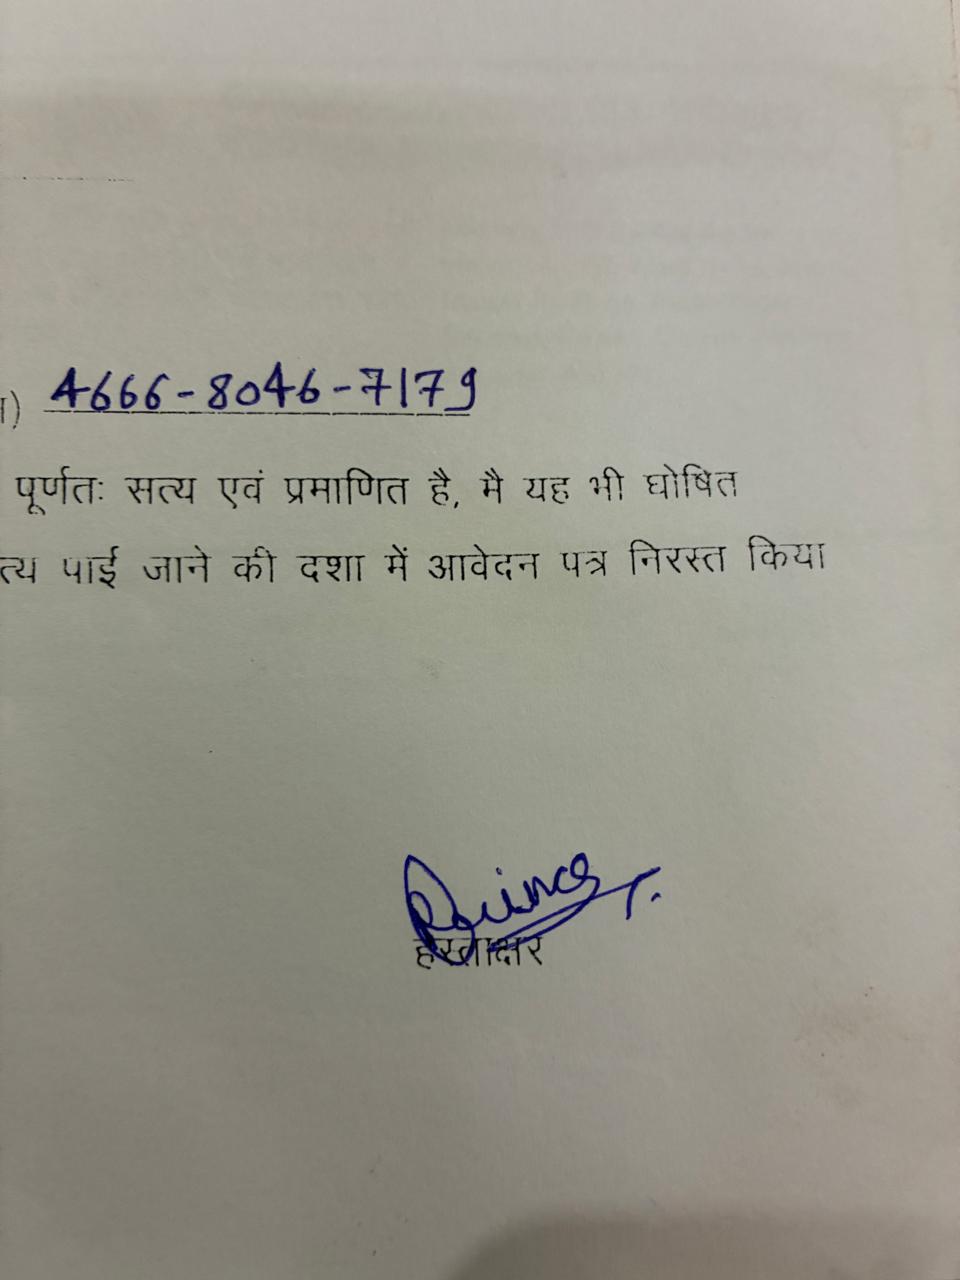 ) 4666-8046-7179
पूर्णतः सत्य एवं प्रमाणित है, मै यह भी घोषित
त्य पाई जाने की दशा में आवेदन पत्र निरस्त किया
Prince
हस्ताक्षर